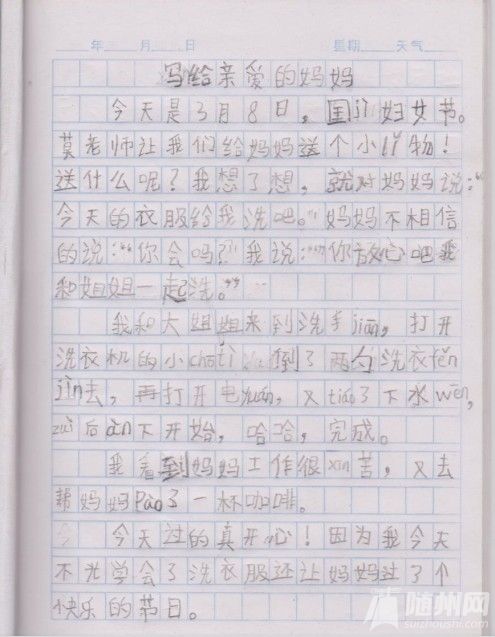 年 月 日 星期 天气
写给亲爱的妈妈
今天是3月8日，国jì妇女节。
莫老师让我们给妈妈送个小lǐ物！
送什么呢？我想了想，就对妈妈说：“
今天的衣服给我洗吧。”妈妈不相信
的说：“你会吗？”我说：“你放心吧我
和姐姐一起洗。”
我和大姐姐来到洗手jiān，打开
洗衣机的小chōuti 倒了两勺洗衣fěn
jìn去，再打开电yuán，又tiáo了下水wēn，
zuì后àn下开始，哈哈，完成。
我看到妈妈工作很xīn苦，又去
帮妈妈Pào了一杯咖啡。
今天过的真开心！因为我今天
不光学会了洗衣服还让妈妈过了个
快乐的节日。
随州网
suizhoushi.com